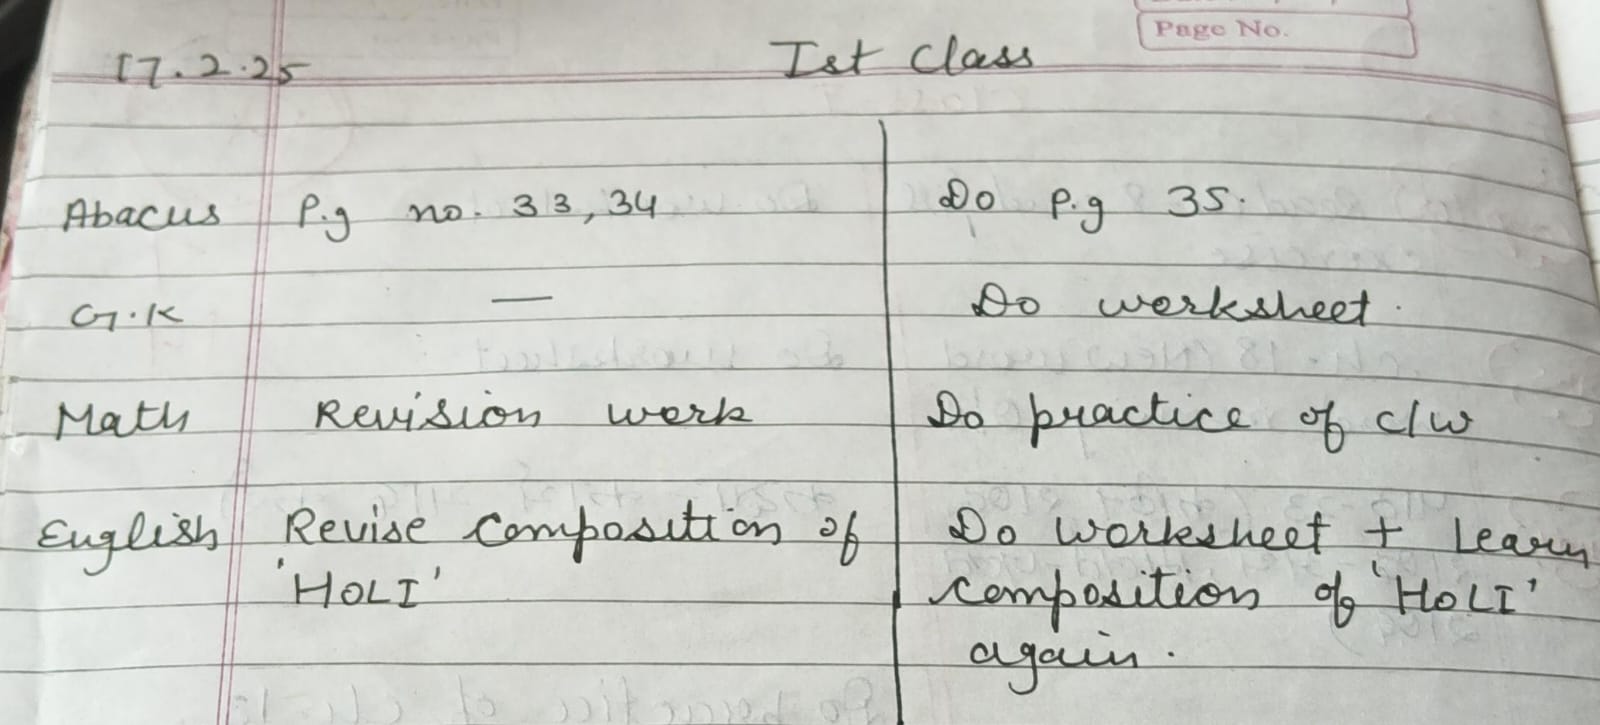 Page No.
17.2.25 Ist Class
Abacus P.g no. 33, 34 Do P.g 35.
G.K — Do worksheet.
Math Revision work Do practice of c/w
English Revise composition of Do worksheet + Learn
'HOLI' composition of 'HOLI'
again.